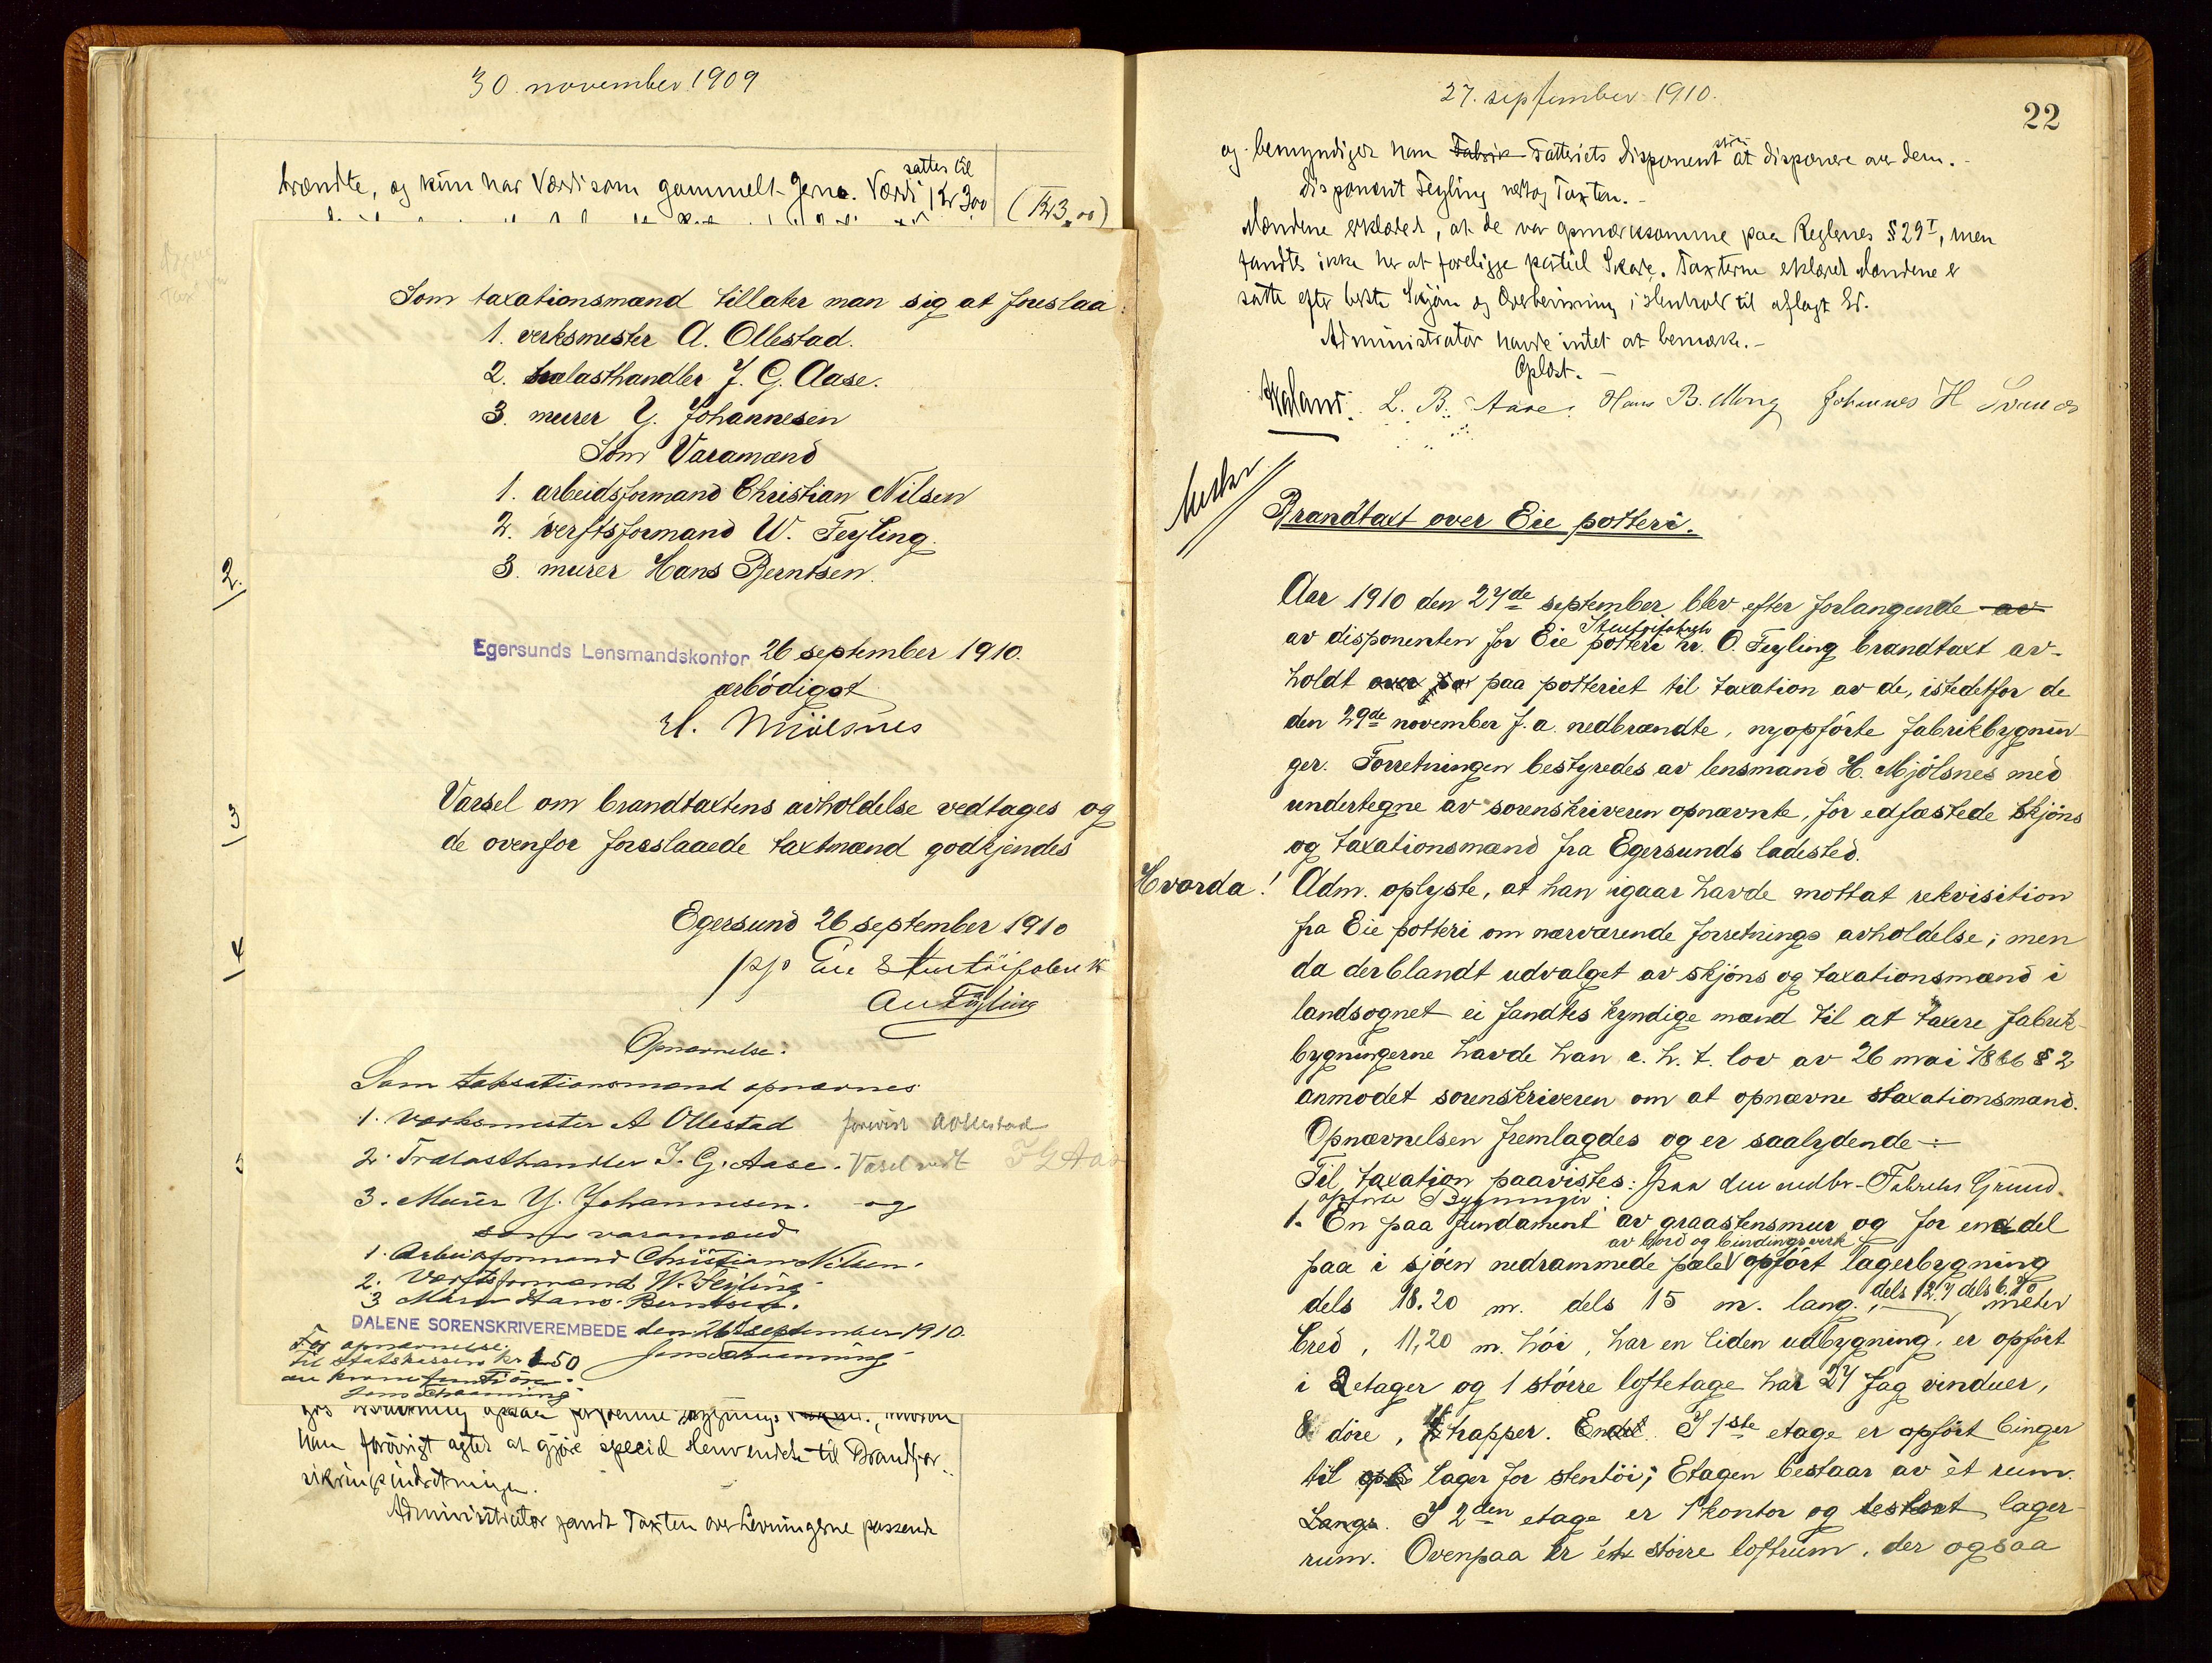 30. november 1909
brændte, og kun har Værdi som gammelt Jern. Værdi sattes til Kr 3,00
(Kr 3,00)
Som taxationsmænd tillater man sig at foreslaa:
1. verksmester A. Ollestad.
2. trælasthandler J. G. Aase.
3. murer Y. Johannesen
Som Varamænd
1. arbeidsformand Christian Nilsen
2. verftsformand W. Feyling.
3. murer Hans Berntsen.
2.
Egersunds Lensmandskontor, 26 september 1910.
ærbødigst
H. Mjølsnes
Varsel om brandtaxtens avholdelse vedtages og
3
de ovenfor foreslaaede taxtmænd godkjendes
Egersund 26 september 1910
4
p/p Eie Stentöifabrik
Feyling
Opnævnelse.
Som taksationsmænd opnævnes
1. Værksmester A Ollestad forevist AOllestad
2. Trælasthandler J. G. Aase. Varsel vedt J G Aase
3. Murer Y. Johannesen. og
som varamænd
1. Arbeidsformand Christian Nilsen.
2. Verftsformand W. Feyling.
3 Murer Hans Berntsen.
DALENE SORENSKRIVEREMBEDE den 26 september 1910.
For opnævnelse
til Statskassen kr 1.50
en krone femti øre.
Jens Schanning
han forövrigt agted at gjöre speciel Henvendelse til Brandfor-
sikringsindretningen.
Administrator fandt Taxten over Levningerne passende
27. september 1910.
22
og bemyndiger ham Fabrik Potteriets Disponent strax at disponere over dem.
Disponent Feyling vedtog Taxten.
Mændene erklæred, at de var opmærksomme paa Reglenes § 29 I, men
fandtes ikke her at foreligge partiel Skade. Taxterne erklæred Mændene er
satte efter bedste Skjön og Overbevisning i Henhold til aflagt Ed.
Administrator havde intet at bemærke.
Oplæst.
L. B. Aase. Hans B. Mong Johannes H Svanes
Brandtaxt over Eie potteri.
Aar 1910 den 27de september blev efter forlangende av
av disponenten for Eie potteri Stentöifabrik hr. O. Feyling brandtaxt av-
holdt over paa potteriet til taxation av de, istedetfor de
den 29de november f. a. nedbrændte, nyopförte fabrikbygnin-
ger. Forretningen bestyredes av lensmand H. Mjölsnes med
undertegne av sorenskriveren opnævnte, för edfæstede skjöns
og taxationsmænd fra Egersunds ladested.
Hvorda! Adm. oplyste, at han igaar havde mottat rekvisition
fra Eie potteri om nærværende forretnings avholdelse; men
da der blandt udvalget av skjöns og taxationsmænd i
landsognet ei fandtes kyndige mænd til at taxere fabrik-
bygningerne havde han i. h. t. lov av 26 mai 1866 § 2
anmodet sorenskriveren om at opnævne taxationsmænd.
Opnævnelsen fremlagdes og er saalydende:
Til taxation paavistes: paa den nedbr. Fabriks Grund
opförte Bygninger:
1. En paa fundament av graastensmur og for en del
paa i sjöen nedrammede pæle av bord og bindingsverk opfört lagerbygning
dels 18.20 m. dels 15 m. lang, dels 12.7 dels 6.20 meter
bred, 11,20 m. höi, har en liden udbygning, er opfört
i 2 etager og 1 större loftetage har 27 fag vinduer,
8 döre, 4 trapper. Endel. I 1ste etage er opfört binger
til lager for stentöi; Etagen bestaar av èt rum.
Langs. I 2den etage er 1 kontor og lager-
rum. Ovenpaa er et större loftrum, der ogsaa